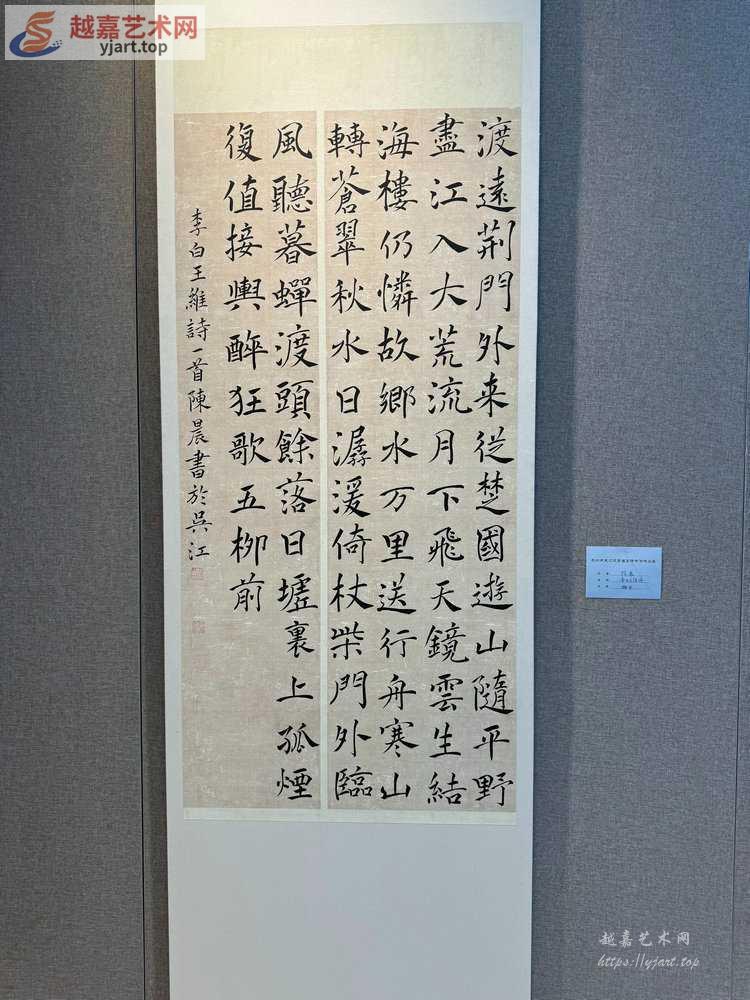 越嘉艺术网
yjart.top
渡遠荆門外来從楚國遊山隨平野
盡江入大荒流月下飛天鏡雲生結
海樓仍憐故鄉水万里送行舟寒山
轉蒼翠秋水日潺湲倚杖柴門外臨
風聽暮蟬渡頭餘落日墟裏上孤煙
復值接輿醉狂歌五柳前
李白王維詩一首陳晨書於吳江
越嘉艺术网
https://yjart.top